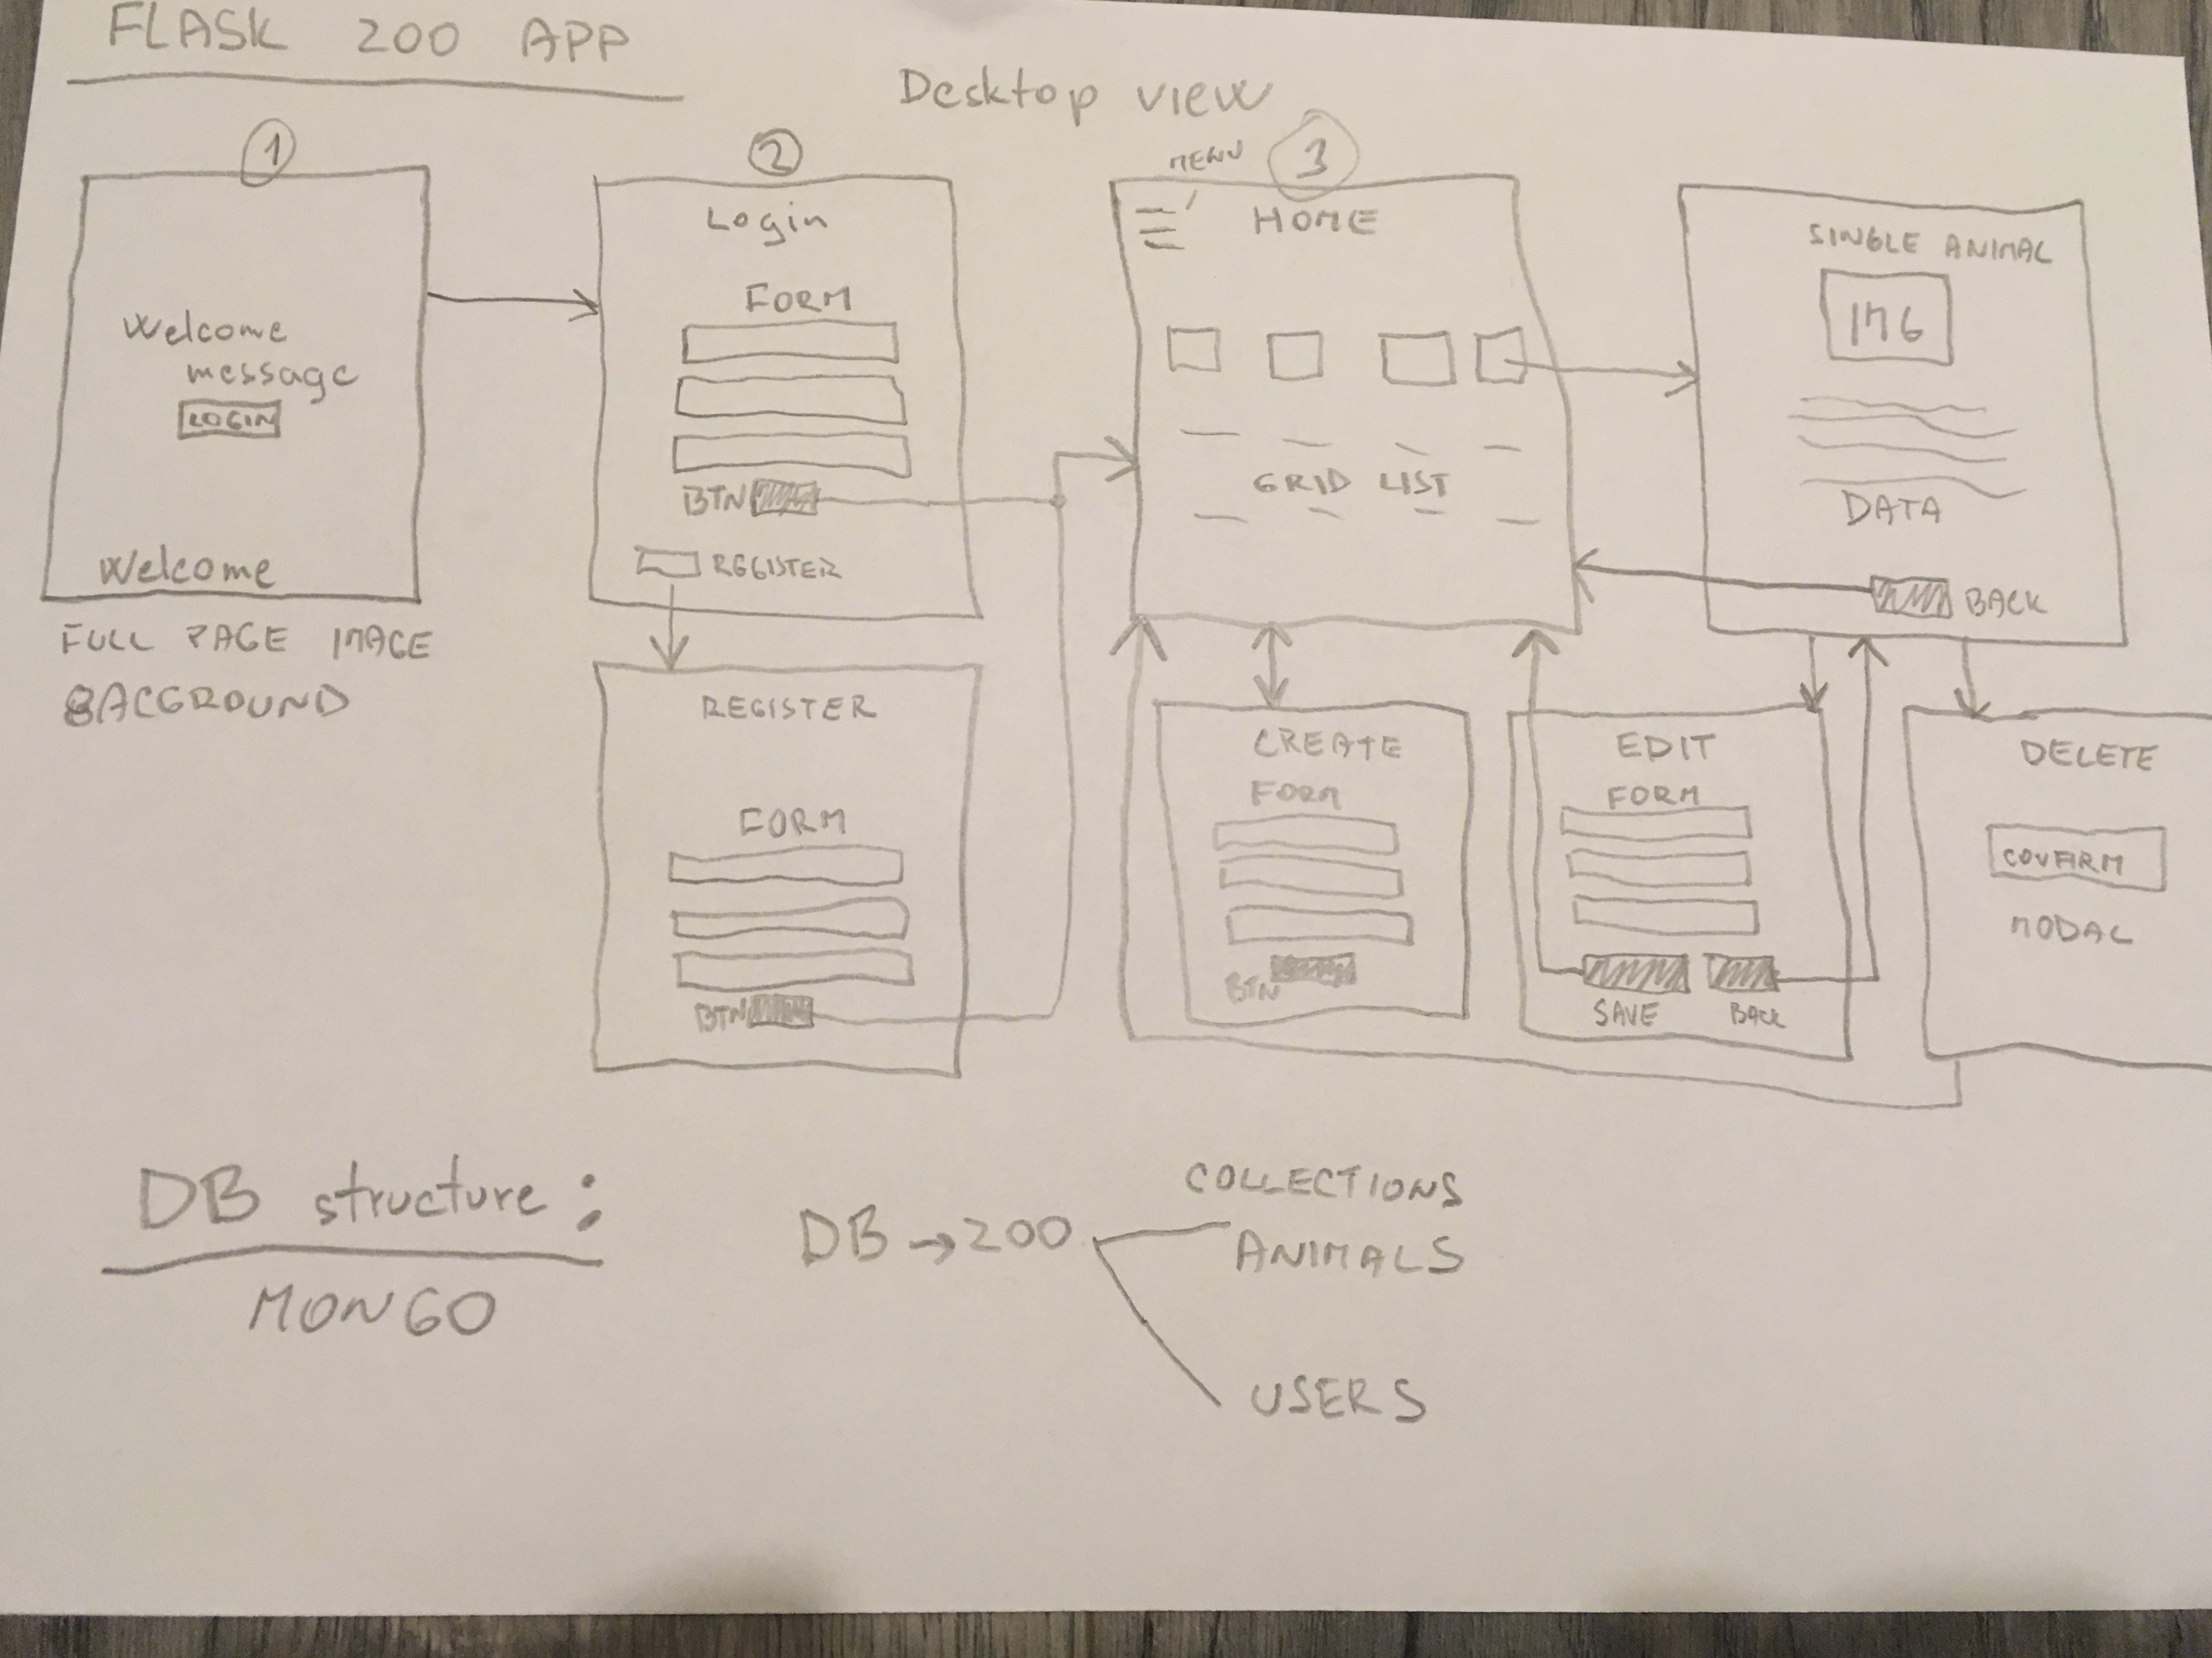 FLASK ZOO APP
Desktop view
1
Welcome
message
LOGIN
Welcome
FULL PAGE IMAGE
BACGROUND
2
Login
FORM
BTN
REGISTER
REGISTER
FORM
BTN
MENU
3
HOME
GRID LIST
SINGLE ANIMAL
IMG
DATA
BACK
CREATE
FORM
BTN
EDIT
FORM
SAVE
BACK
DELETE
CONFIRM
MODAL
DB structure:
MONGO
DB → ZOO
COLLECTIONS
ANIMALS
USERS